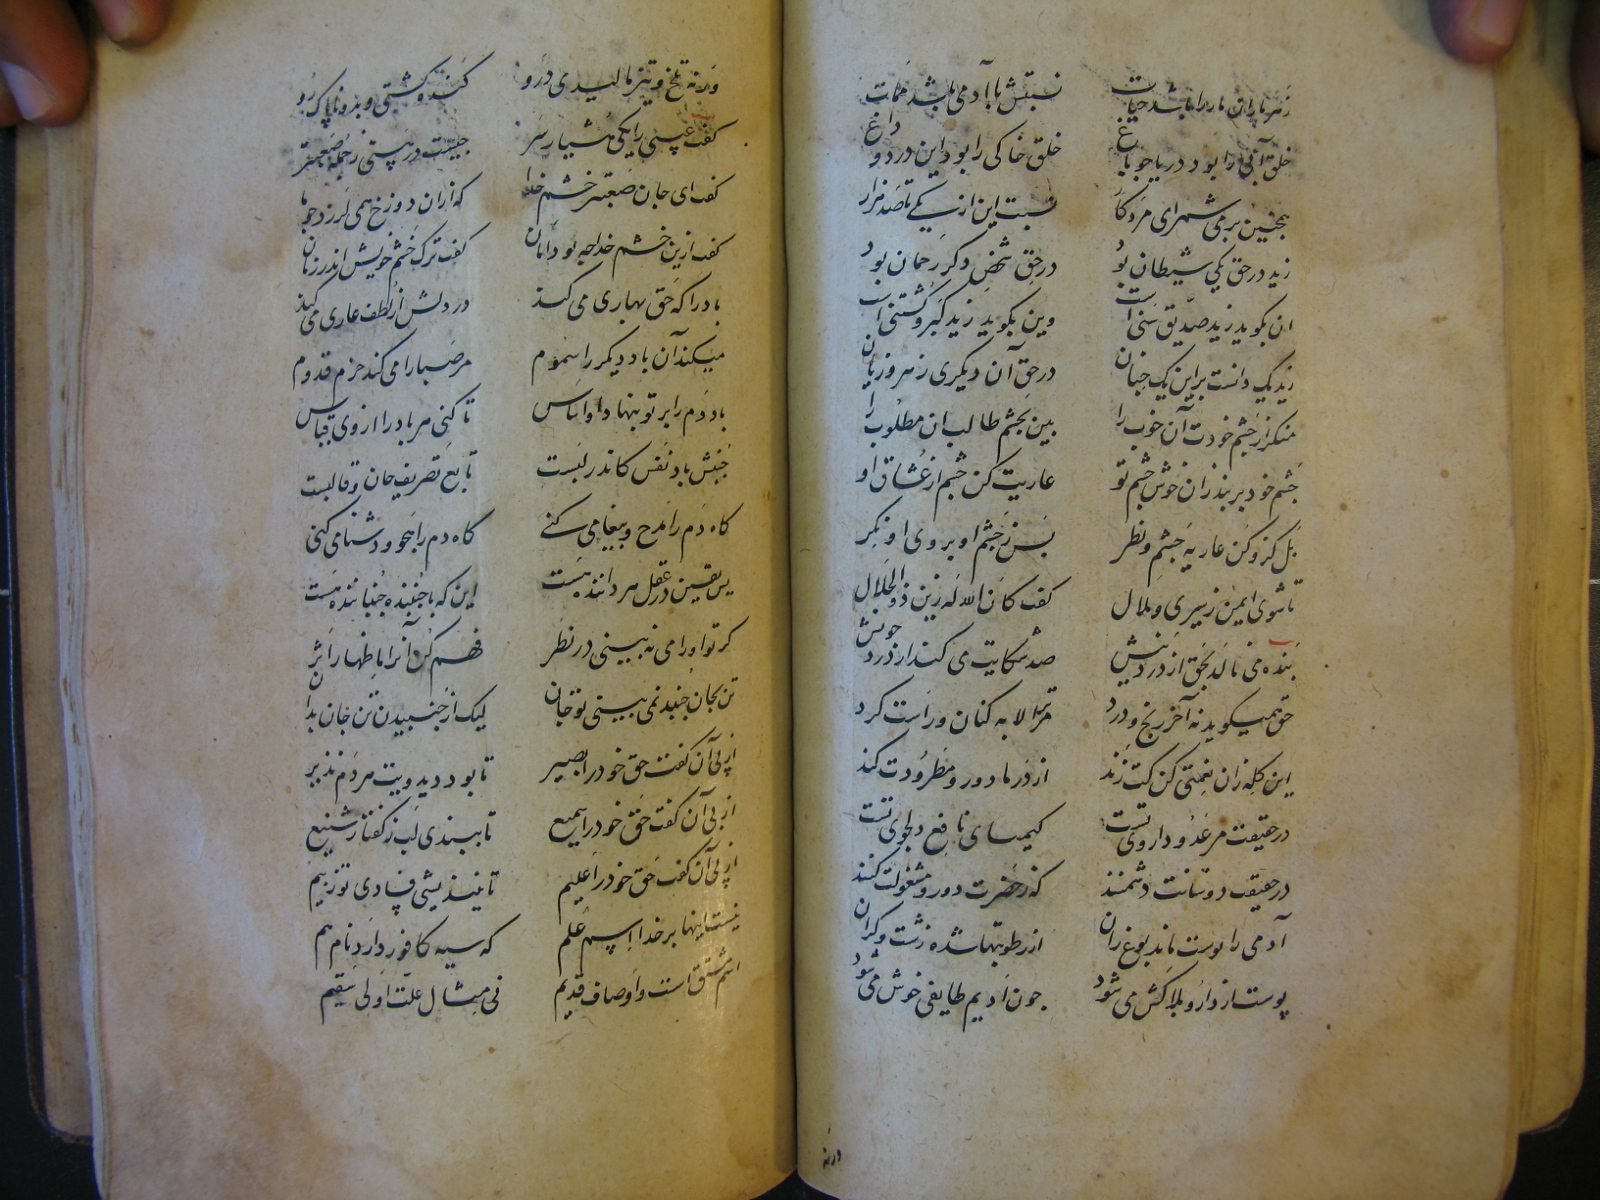 زهر ماران مار را باشد حیات نسبتش با آدمی باشد ممات
خلق آبی را بود دریا چو باغ خلق خاکی را بود این درد و داغ
همچنین بر می شمر ای مرد کار نسبت این از یکی تا صد هزار
زید در حق یکی شیطان بود در حق شخص دکر رحمان بود
ان بکوید زید صدیق سنی است وین بکوید زید کبر و کشتنی است
زید یک دانست بر این یک جنان در حق آن دیکری زهر و زیان
منکر از چشم خودت آن خوب را بین بچشم طالبان مطلوب را
چشم خود بربند زان خوش چشم تو عاریت کن چشم از عشاق او
بل کزو کن عاریه چشم و نظر بس ز چشم او بروی او نکر
تا شوی ایمن ز سیری و ملال کفت کان الله له زین ذو الجلال
بنده می نالد بحق از درد نیش صد شکایت می کند از درد خویش
حق همیکوید نه آخر رنج و درد مر ترا لابه کنان و راست کرد
این کله زان نعمتی کن کت زند از در ما دور و مطرودت کند
در حقیقت مر عدو داروی تست کیمیای نافع دلجوی تست
در حقیقت دوستانت دشمنند که ز حضرت دور و مشغولت کنند
آدمی را پوست ماند بوغ ران از رطوبتها شده زشت و کران
پوست از دارو بلاکش می شود جون ادیم طایفی خوش می شود
ورنه
ورنه تلخ و تیز مالیدی درو کنده کشتی و بد و ناپاک رو
کفت عیسی را یکی هشیار سر جیست در هستی ز جمله صعبتر
کفت ای جان صعبتر خشم خدا که ازان دوزخ همی لرزد جو ما
کفت ازین خشم خدا جه بود امان کفت ترک خشم خویش اندر زمان
باد را که حق بهاری می کند در دلش از لطف عاری می کند
میکند آن باد دیکر را سموم مر صبا را می کند خرم قدوم
باد دم را بر تو بنهاد او اساس تا کنی هر باد را از وی قیاس
جنبش باد نفس کاندر لبست تابع تصریف جان و قالبست
کاه دم را مدح و پیغامی کنی کاه دم را هجو و دشنامی کنی
پس یقین در عقل هر داننده هست این که با جنبنده جنباننده هست
کر تو او را می نه بینی در نظر فهم کن آنرا باظهار اثر
تن بجان جنبد نمی بینی تو جان لیک از جنبیدن تن جان بدان
از پی آن کفت حق خود را بصیر تا بود دید ویت هر دم نذیر
از پی آن کفت حق خود را سمیع تا ببندی لب ز کفتار شنیع
از پی آن کفت حق خود را علیم تا نیندیشی فسادی تو ز بیم
نیست اینها بر خدا اسم علم که سیه کافور دارد نام هم
اسم مشتق است و اوصاف قدیم نی مثال علت اولی سقیم